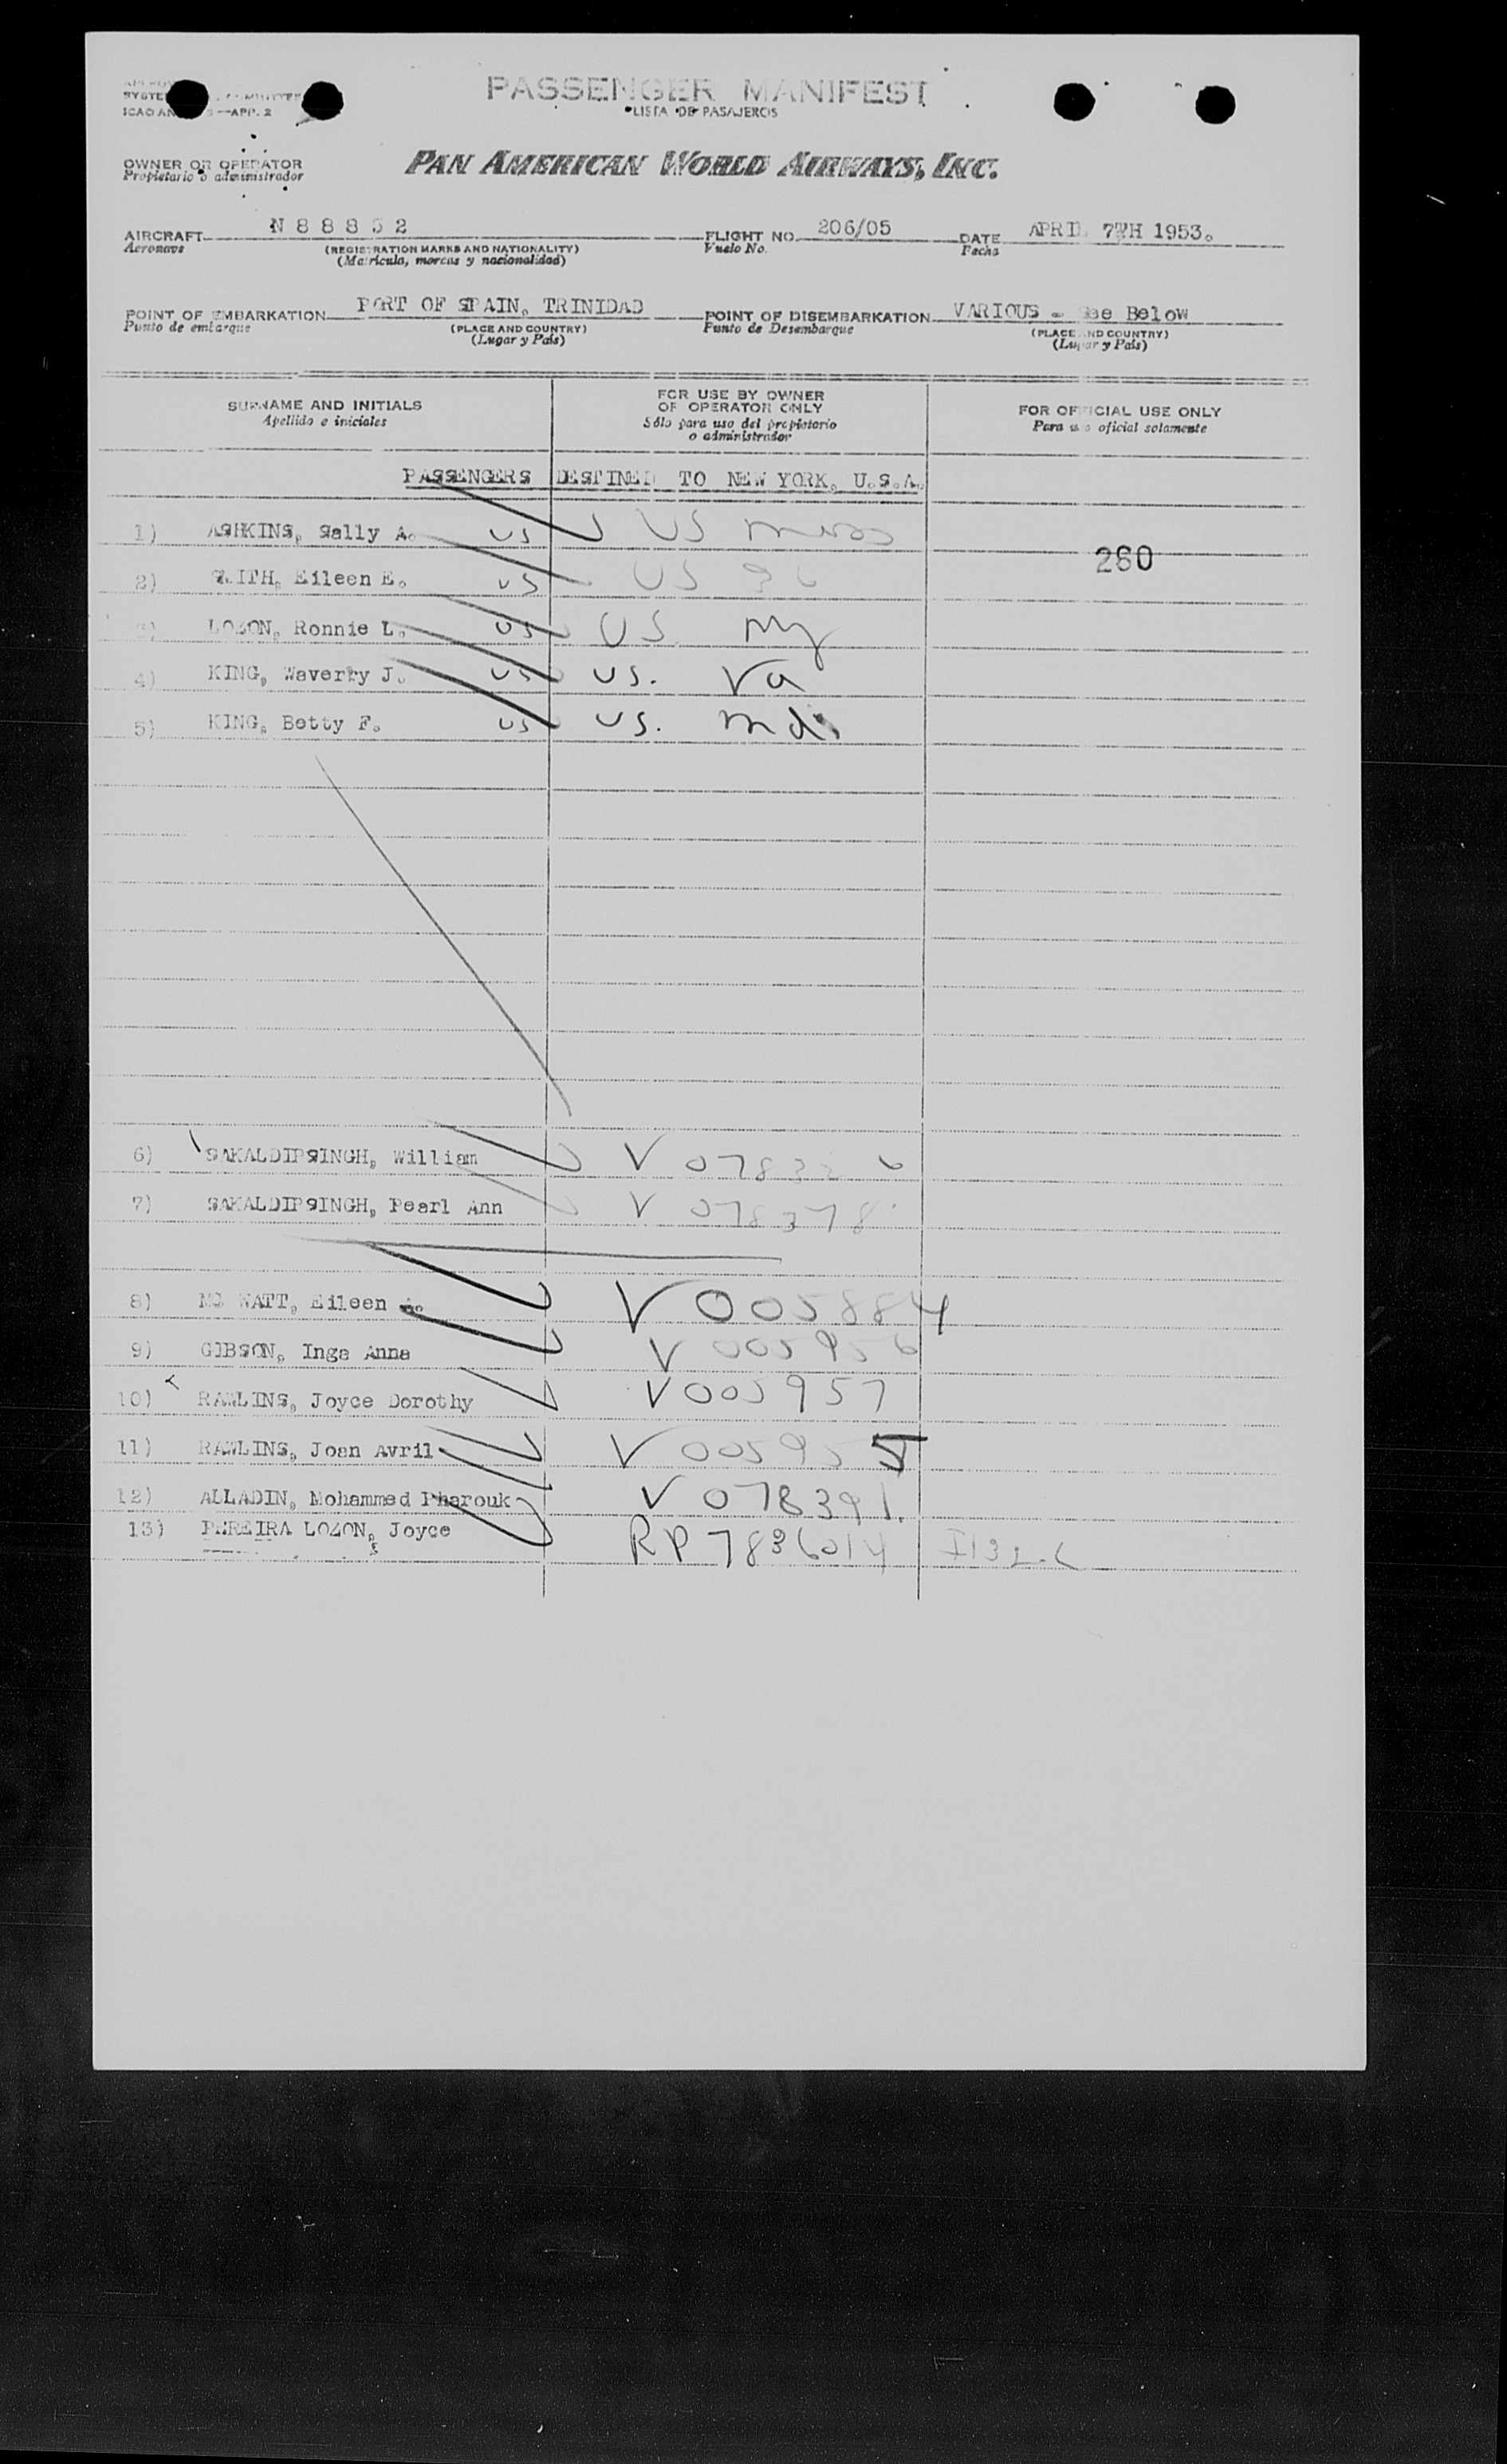 PASSENGER MANIFEST
LISTA DE PASAJEROS
ICAO —APP. 2
OWNER OR OPERATOR
Propietario o administrador
PAN AMERICAN WORLD AIRWAYS, INC.
AIRCRAFT N 8 8 8 5 2 FLIGHT NO. 206/05 DATE APRIL 7TH 1953.
Aeronave (REGISTRATION MARKS AND NATIONALITY) Vuelo No. Fecha
(Matricula, marcas y nacionalidad)
POINT OF EMBARKATION PORT OF SPAIN, TRINIDAD POINT OF DISEMBARKATION VARIOUS - See Below
Punto de embarque (PLACE AND COUNTRY) Punto de Desembarque (PLACE AND COUNTRY)
(Lugar y País) (Lugar y País)
SURNAME AND INITIALS FOR USE BY OWNER OF OPERATOR ONLY FOR OFFICIAL USE ONLY
Apellido e iniciales Sólo para uso del propietario o administrador Para uso oficial solamente
PASSENGERS DESTINED TO NEW YORK, U.S.A.
1) ASHKINS, Sally A. US US Mass
260
2) SMITH, Eileen E. US US
3) LOZON, Ronnie L. US US NY
4) KING, Waverly J. US US. Va
5) KING, Betty F. US US. Md.
6) SAKALDIPSINGH, William V
7) SAKALDIPSINGH, Pearl Ann V 078378
8) MC WATT, Eileen A. V 005884
9) GIBSON, Inga Anna V 005956
10) RAWLINS, Joyce Dorothy V 005957
11) RAWLINS, Joan Avril V 005955
12) ALLADIN, Mohammed Pharouk V 078391.
13) PEREIRA LOZON, Joyce RP 7836014